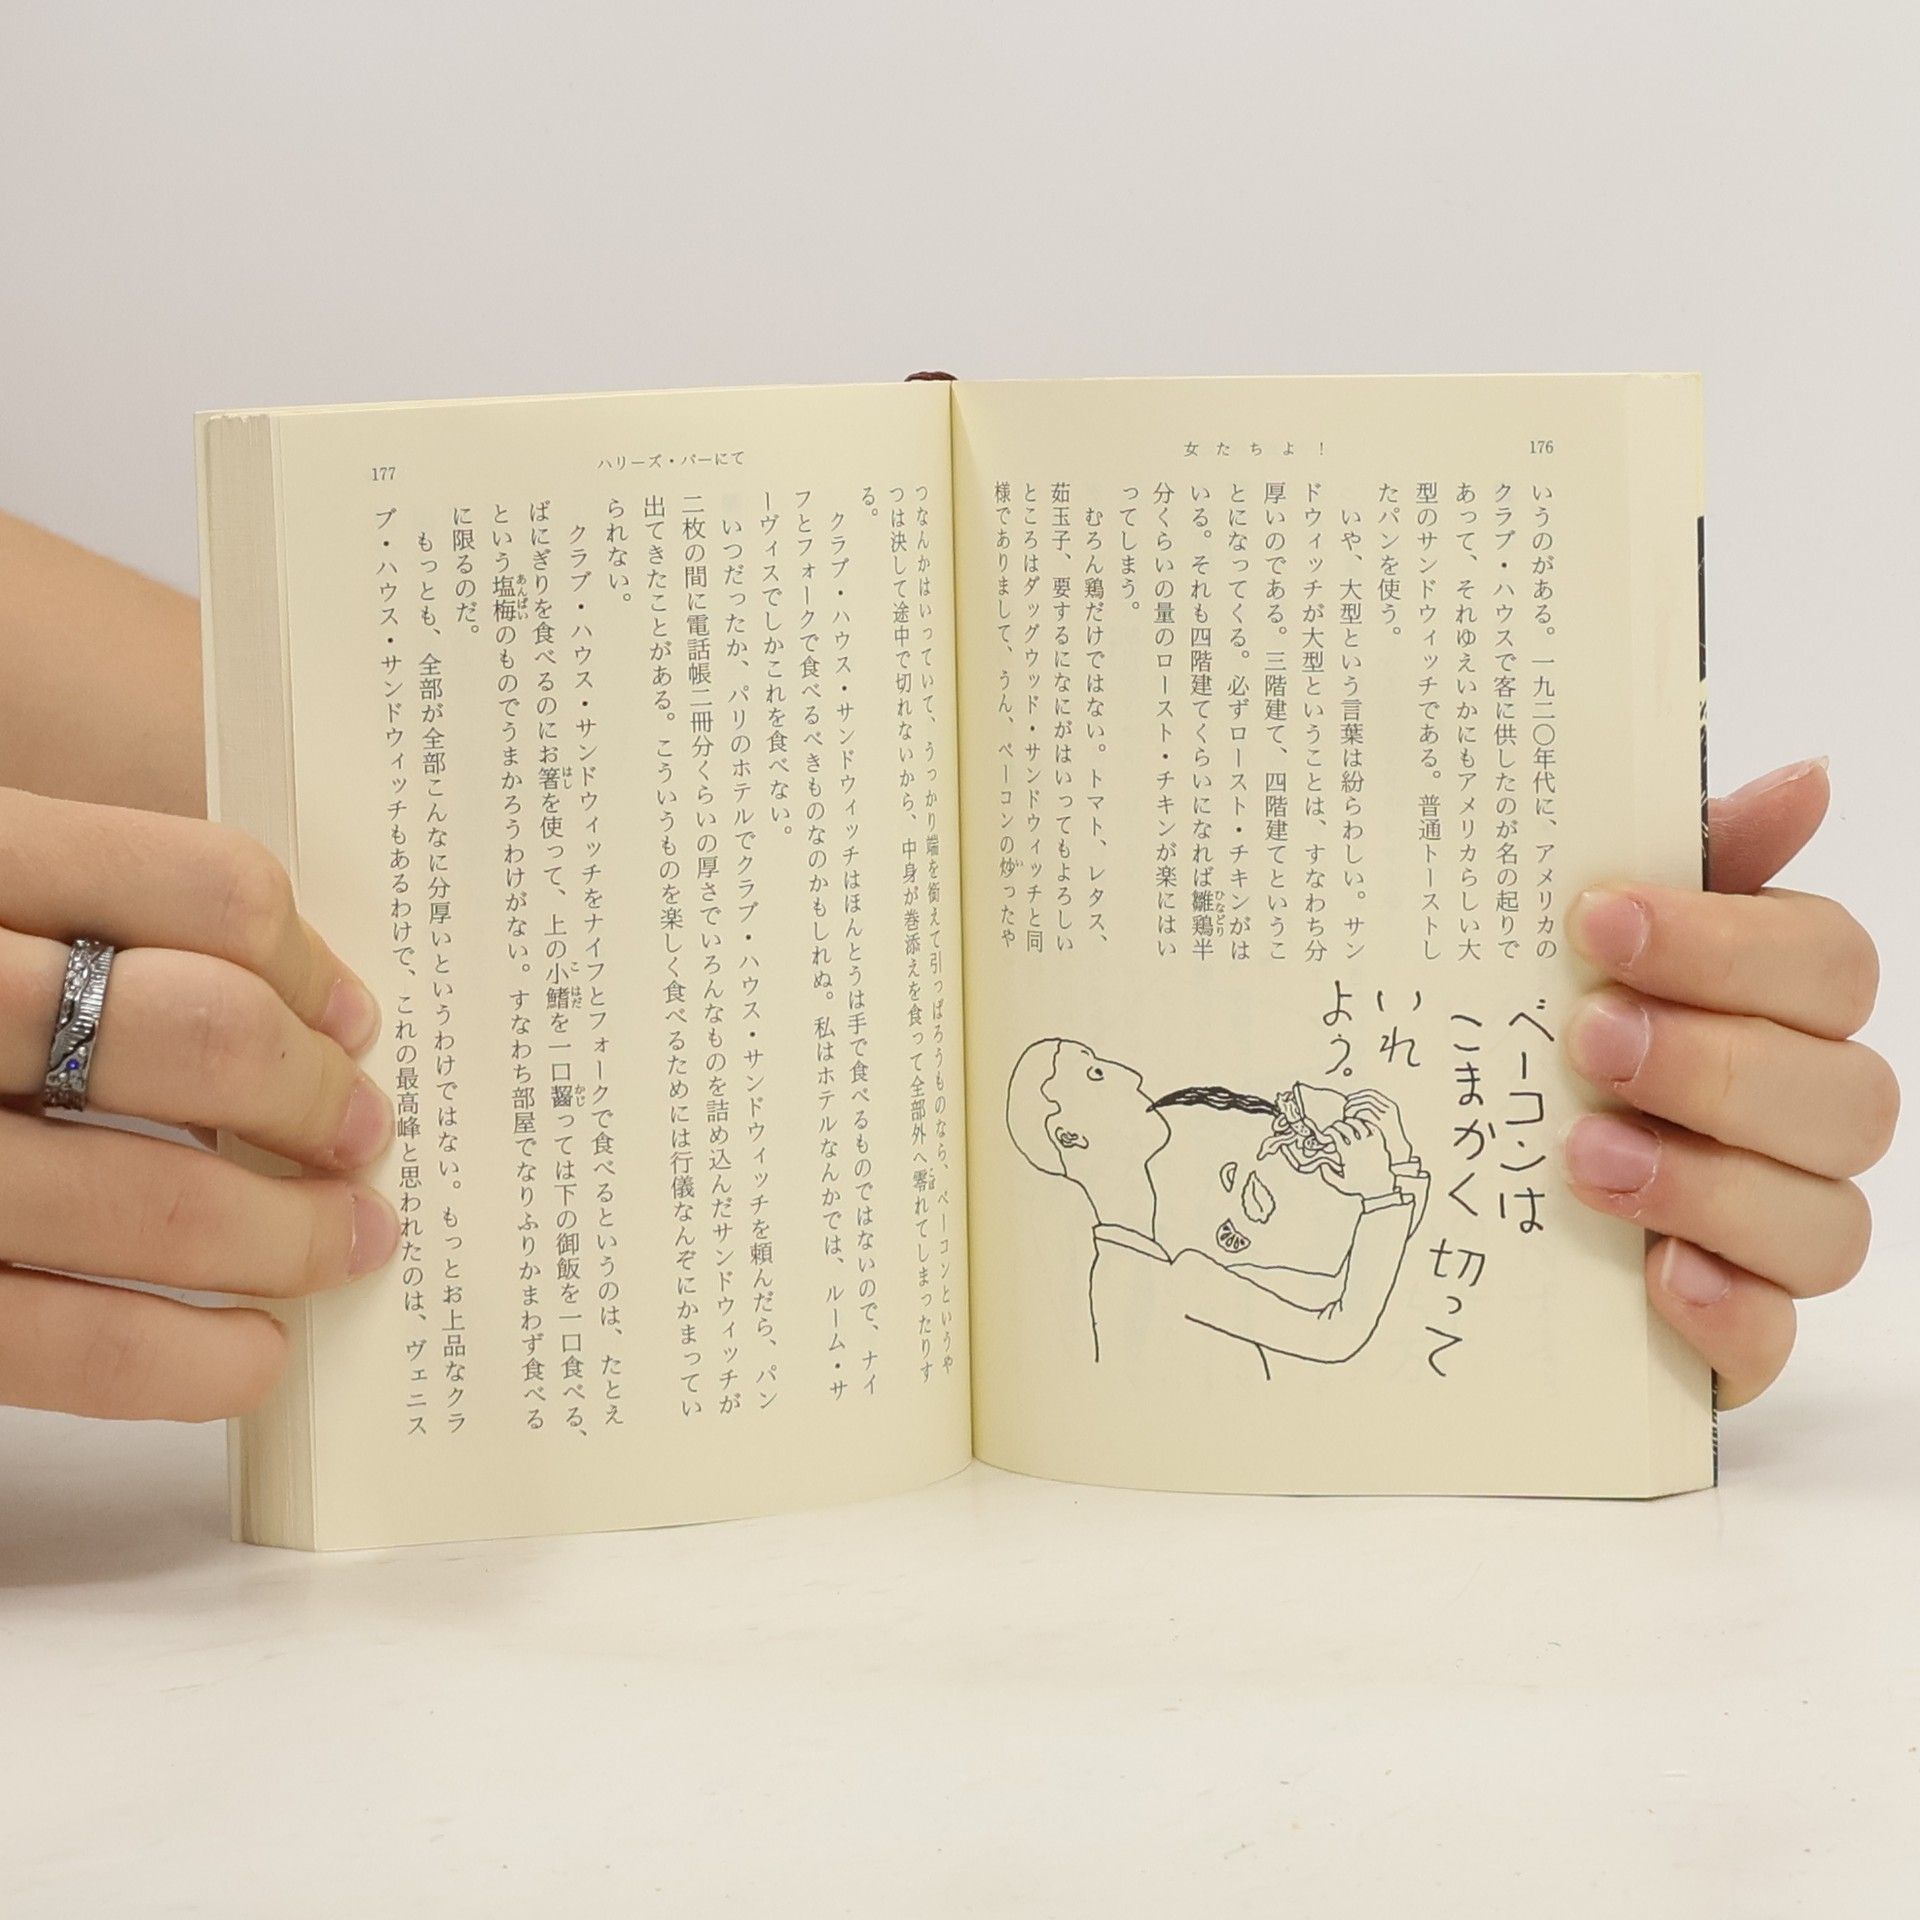 176
女たちよ！
いうのがある。一九二〇年代に、アメリカの
クラブ・ハウスで客に供したのが名の起りで
あって、それゆえいかにもアメリカらしい大
型のサンドウィッチである。普通トーストし
たパンを使う。
いや、大型という言葉は紛らわしい。サン
ドウィッチが大型ということは、すなわち分
厚いのである。三階建て、四階建てというこ
とになってくる。必ずロースト・チキンがは
いる。それも四階建てくらいになれば雛鶏半
ひなどり
分くらいの量のロースト・チキンが楽にはい
ってしまう。
むろん鶏だけではない。トマト、レタス、
茹玉子、要するになにがはいってもよろしい
ところはダッグウッド・サンドウィッチと同
様でありまして、うん、ベーコンの炒ったや
い
ベーコンは
こまかく切って
いれ
よう。
ハリーズ・バーにて
177
つなんかはいっていて、うっかり端を銜えて引っぱろうものなら、ベーコンというや
つは決して途中で切れないから、中身が巻添えを食って全部外へ零れてしまったりす
こぼ
る。
クラブ・ハウス・サンドウィッチはほんとうは手で食べるものではないので、ナイ
フとフォークで食べるべきものなのかもしれぬ。私はホテルなんかでは、ルーム・サ
ーヴィスでしかこれを食べない。
いつだったか、パリのホテルでクラブ・ハウス・サンドウィッチを頼んだら、パン
二枚の間に電話帳二冊分くらいの厚さでいろんなものを詰め込んだサンドウィッチが
出てきたことがある。こういうものを楽しく食べるためには行儀なんぞにかまってい
られない。
クラブ・ハウス・サンドウィッチをナイフとフォークで食べるというのは、たとえ
ばにぎりを食べるのにお箸を使って、上の小鰭を一口齧っては下の御飯を一口食べる、
はし
こはだ
かじ
という塩梅のものでうまかろうわけがない。すなわち部屋でなりふりかまわず食べる
あんばい
に限るのだ。
もっとも、全部が全部こんなに分厚いというわけではない。もっとお上品なクラ
ブ・ハウス・サンドウィッチもあるわけで、これの最高峰と思われたのは、ヴェニス